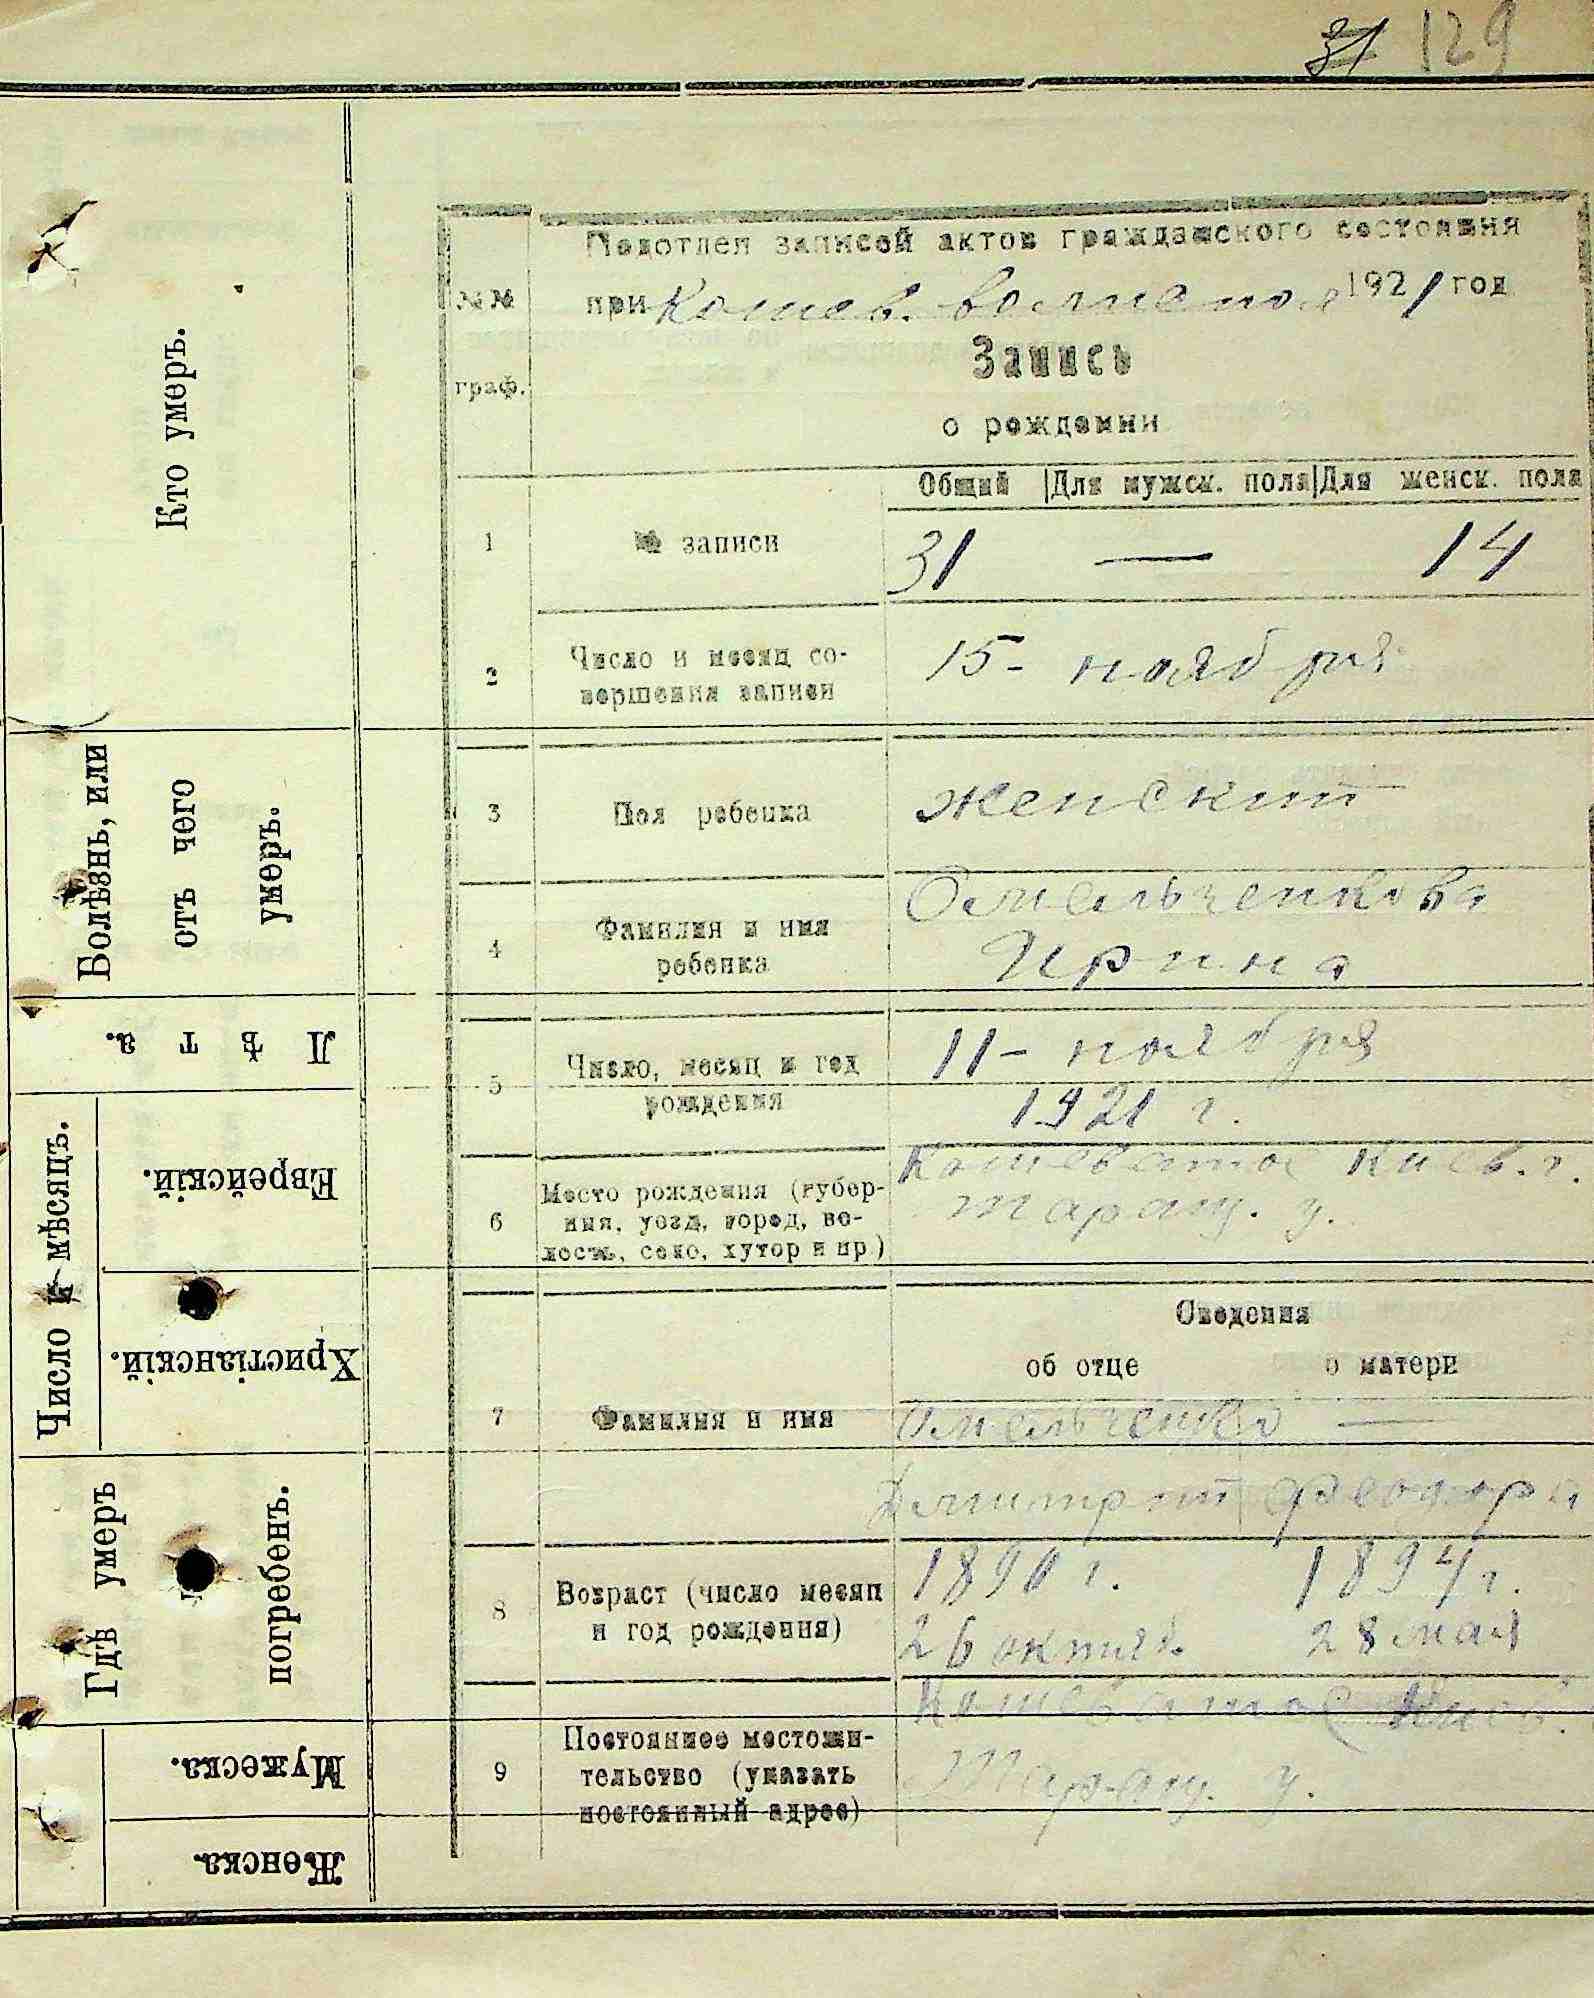 31 129
Кто умеръ.
Болѣзнь, или
отъ чего
умеръ.
Лѣта.
Число и мѣсяцъ.
Еврейскій.
Христіанскій.
Гдѣ умеръ
и
погребенъ.
Мужеска.
Женска.
Подотдел записей актов гражданского состояния
при Кошев. волисполк 1921 год
№№
граф.
Запись
о рождении
Общий Для мужск. пола Для женск. пола
1 № записи 31 — 14
2 Число и месяц со-
вершения записи 15 - ноября
3 Пол ребенка женский
4 Фамилия и имя
ребенка
Омельченкова
Ирина
5 Число, месяц и год
рождения
11 - ноября
1921 г.
6 Место рождения (губер-
ния, уезд, город, во-
лость, село, хутор и пр.)
Кошеватое Киев. г.
Таращ. у.
Сведения
об отце о матери
7 Фамилия и имя Омельченко —
Димитрий Феодора
8 Возраст (число месяц
и год рождения)
1890 г. 1894 г.
26 октяб. 28 мая
9 Постоянное местожи-
тельство (указать
постоянный адрес)
Кошеватое Киев.
Таращ. у.